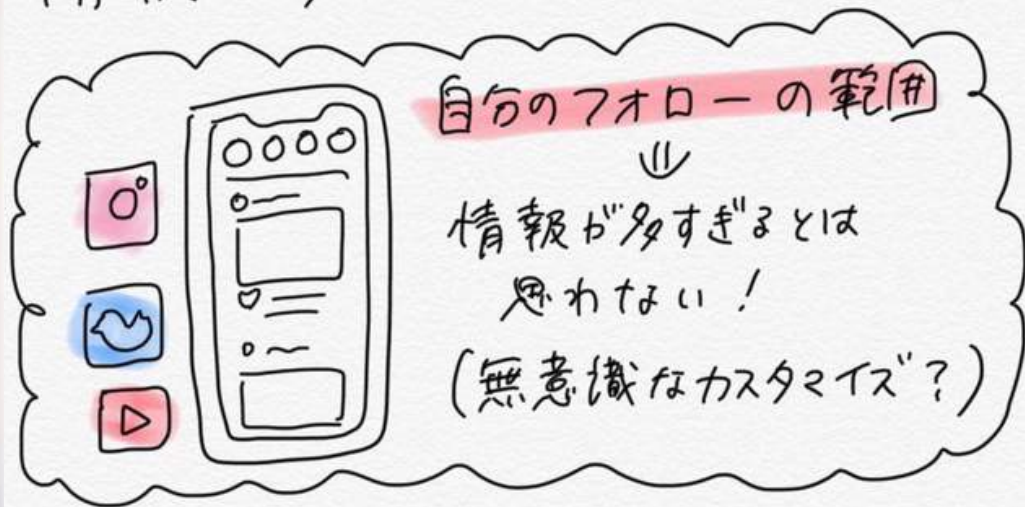 自分のフォローの範囲
情報が多すぎるとは
思わない！
(無意識なカスタマイズ？)